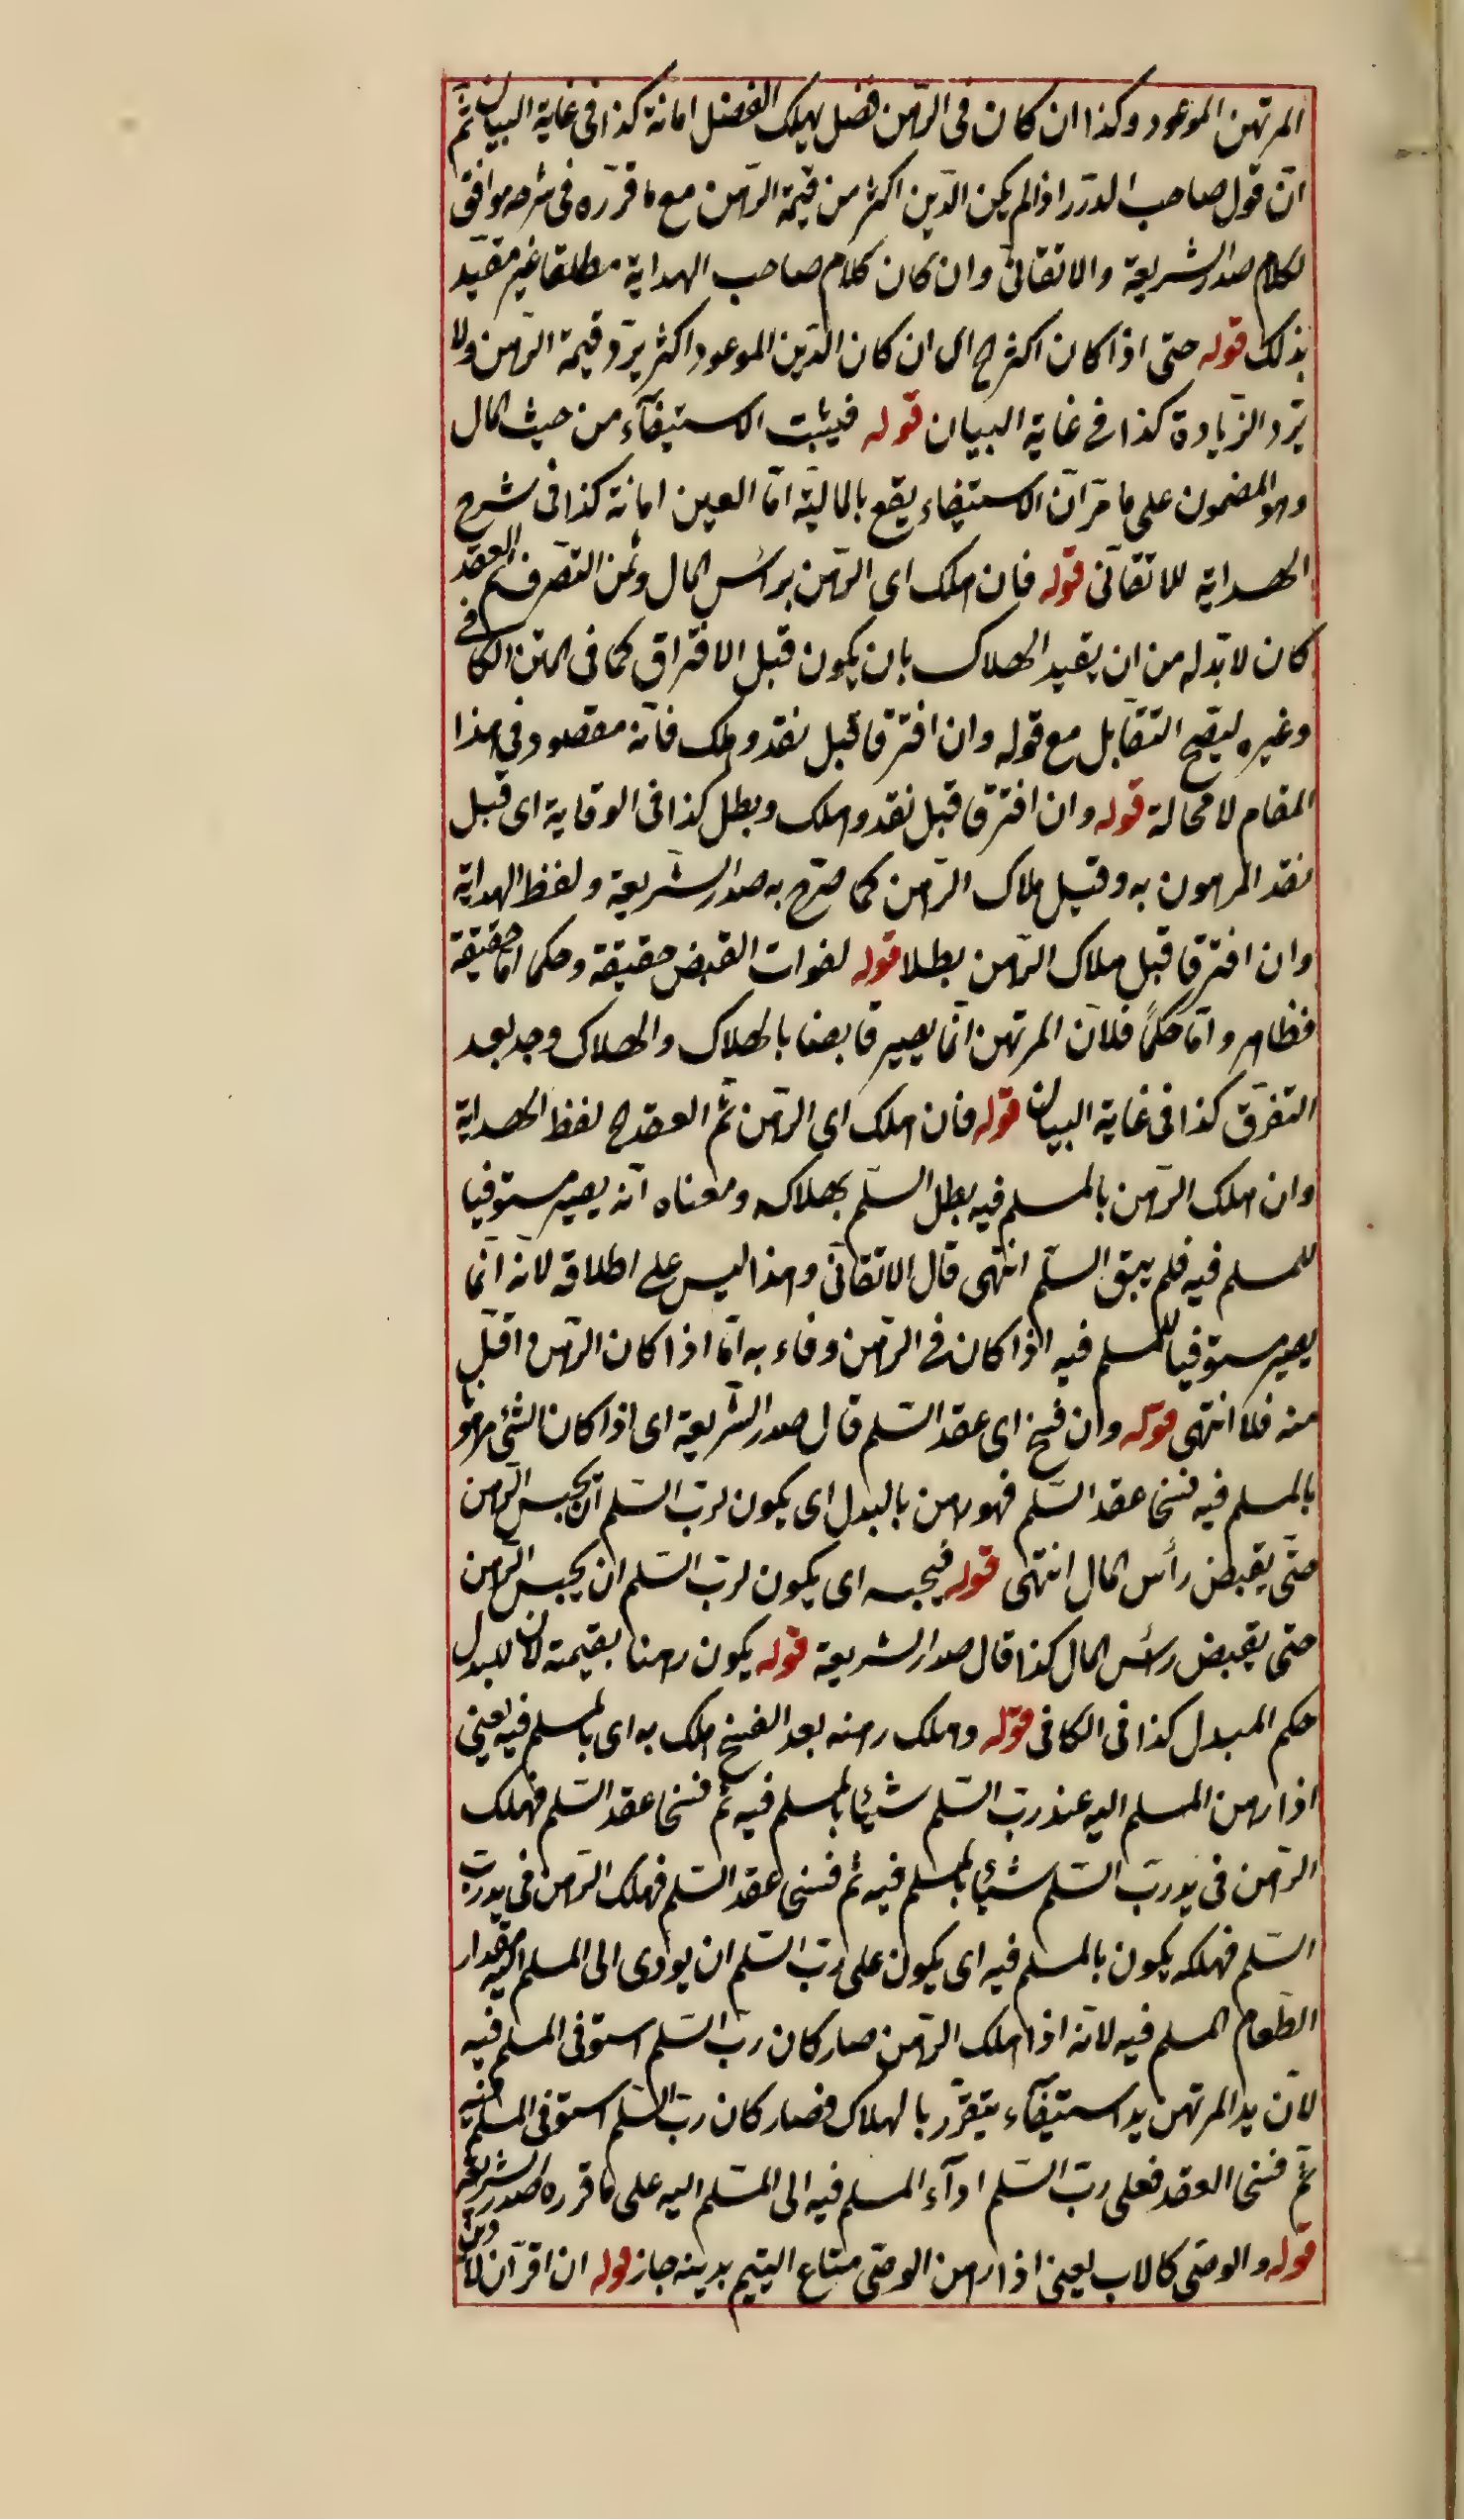 المرتهن الموعود وكذا ان كان فى الرّهن فضل يهلك الفضل امانة كذا فى غاية البيان ثمّ
انّ قول صاحب الدّرر اذا لم يكن الدّين اكثر من قيمة الرّهن مع ما قرّره فى شرحه موافق
لكلام صدر الشريعة والاتقانىّ وان كان كلام صاحب الهداية مطلقا غير مقيّد
بذلك قوله حتى اذا كان اكثر الخ اى ان كان الدّين الموعود اكثر يردّ قيمة الرّهن ولا
يردّ الزّيادة كذا فى غاية البيان قوله فيثبت الاستيفآء من حيث المال
وهو المضمون على ما مرّ انّ الاستيفاء يقع بالماليّة امّا العين امانة كذا فى شرح
الهداية للاتقانى قوله فان هلك اى الرّهن براس المال وثمن التصرف ثمّ العقد
كان لا بدّ له من ان يقيد الهلاك بان يكون قبل الافتراق كما فى المتن الكافى
وغيره ليتّضح التقابل مع قوله وان افترقا قبل نقد وهلك فانّه مقصود فى هذا
المقام لا محالة قوله وان افترقا قبل نقد وهلك وبطل كذا فى الوقاية اى قبل
نقد المرهون به وقبل هلاك الرّهن كما صرّح به صدر الشّريعة ولفظ الهداية
وان افترقا قبل هلاك الرّهن بطلا قوله لفوات القبض حقيقة وحكما امّا حقيقة
فظاهر وامّا حكمًا فلانّ المرتهن انّما يصير قابضا بالهلاك والهلاك وجد بعد
التفرّق كذا فى غاية البيان قوله فان هلك اى الرّهن ثمّ العقد الخ لفظ الهداية
وان هلك الرّهن بالمسلم فيه بطل السّلم بهلاكه ومعناه انّه يصير مستوفيا
للمسلم فيه فلم يبق السّلم انتهى قال الاتقانىّ وهذا ليس على اطلاقه لانه انّما
يصير مستوفيا للمسلم فيه اذا كان فى الرّهن وفاء به امّا اذا كان الرّهن اقلّ
منه فلا انتهى قوله وان فسخ اى عقد السّلم قال صدر الشّريعة اى اذا كان الشئ مرهونا
بالمسلم فيه فسخا عقد السّلم فهو رهن بالبدل اى يكون لربّ السّلم ان يحبس الرّهن
حتّى يقبض رأس المال انتهى قوله فيحبسه اى يكون لربّ السّلم ان يحبس الرّهن
حتى يقبض رأس المال كذا قال صدر الشريعة قوله يكون رهنا بقيمته لان للبدل
حكم المبدل كذا فى الكافى قوله وهلك رهنه بعد الفسخ هلك به اى بالمسلم فيه يعنى
اذا رهن المسلم اليه عند ربّ السّلم شيئا بالمسلم فيه ثم فسخا عقد السّلم فهلك
الرّهن فى يد ربّ السّلم شيئا بالمسلم فيه ثم فسخا عقد السّلم فهلك الرّهن فى يد ربّ
السّلم فهلكه يكون بالمسلم فيه اى يكون على ربّ السّلم ان يودى الى المسلم اليه مقدار
الطّعام المسلم فيه لانّه اذا هلك الرّهن صار كان ربّ السّلم استوفى المسلم فيه
لانّ يد المرتهن يد استيفآء يتقرّر بالهلاك فصار كان ربّ السّلم استوفى المسلم فيه
ثمّ فسخا العقد فعلى ربّ السّلم ادآء المسلم فيه الى المسّلم اليه على ما قرره صدر الشريعة
قوله والوصّى كالاب يعنى اذا رهن الوصّى متاع اليتيم بدينه جاز قوله ان اقرّ ان لا دين